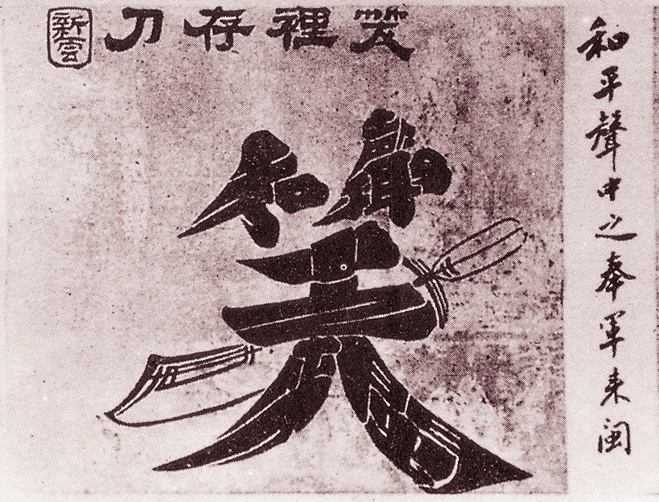 笑裡存刀
笑
和平聲中之奉軍来閩